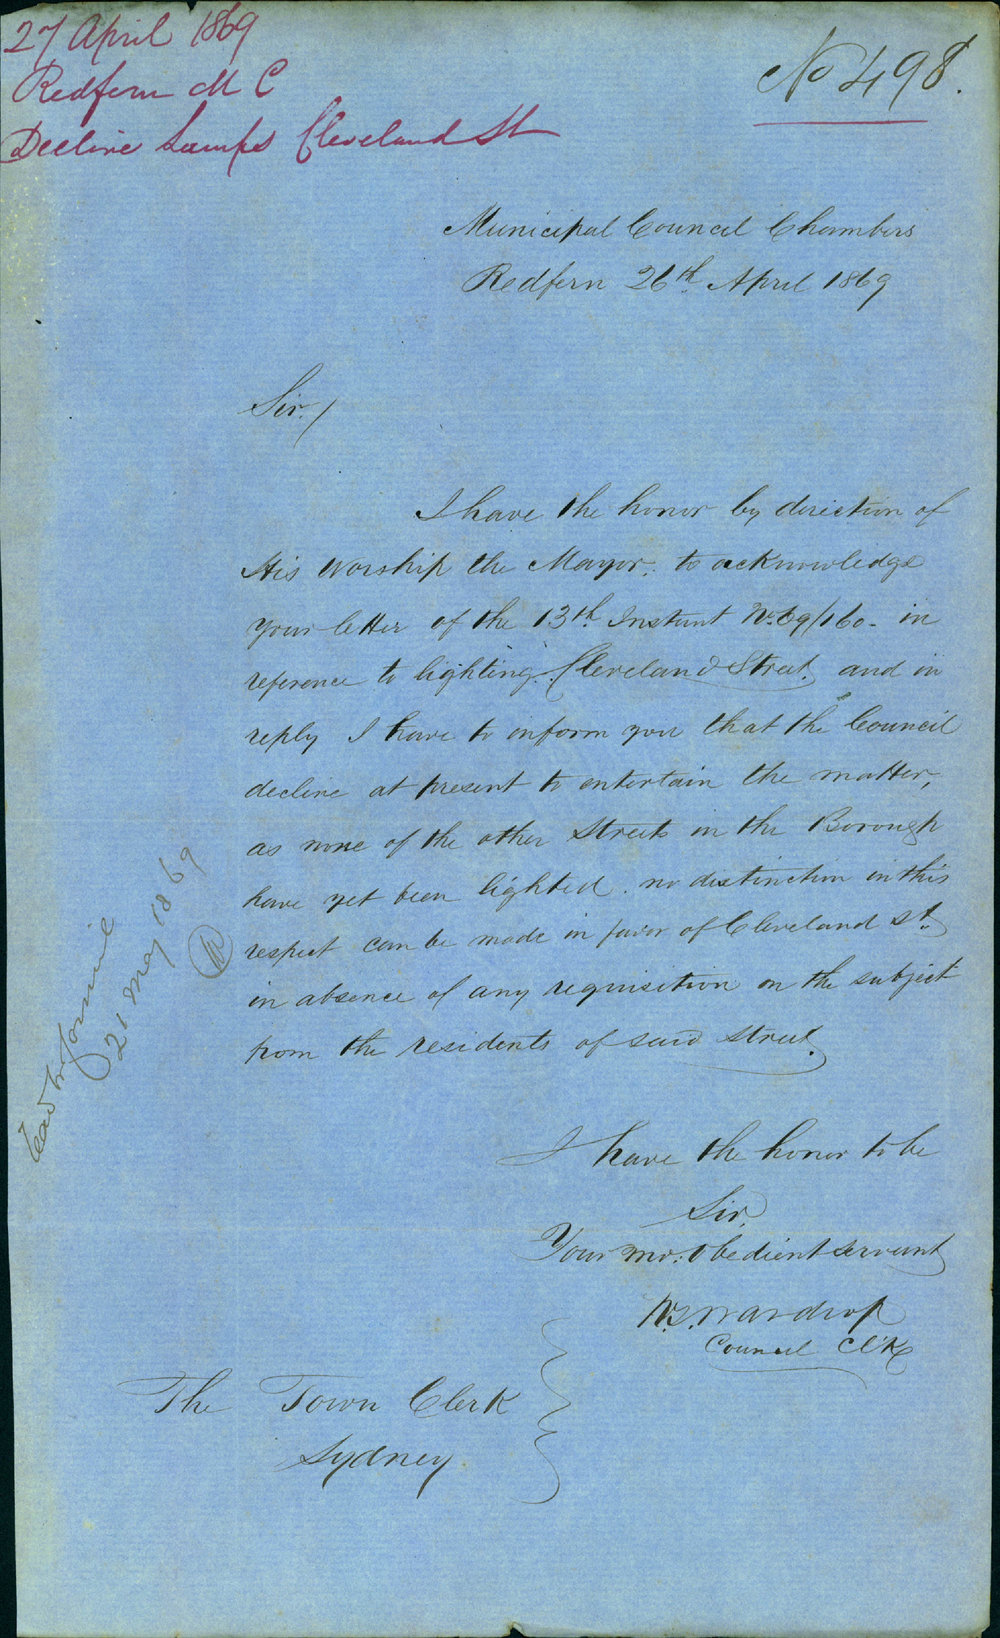 27 April 1869
Redfern M C
Decline Lamps Cleveland St
No 498.
Municipal Council Chambers
Redfern 26th April 1869
Sir,/
I have the honor by direction of
His Worship the Mayor. to acknowledge
your letter of the 13th Instant No. 69/160 - in
reference to lighting Cleveland Street, and in
reply I have to inform you that the Council
decline at present to entertain the matter,
as none of the other Streets in the Borough
have yet been lighted. no distinction in this
respect can be made in favor of Cleveland St.
in absence of any requisition on the subject
from the residents of said street.
I have the honor to be
Sir,
Your mo: obedient servant
Wardrop
Council Cl'k
The Town Clerk
Sydney
21 May 1869